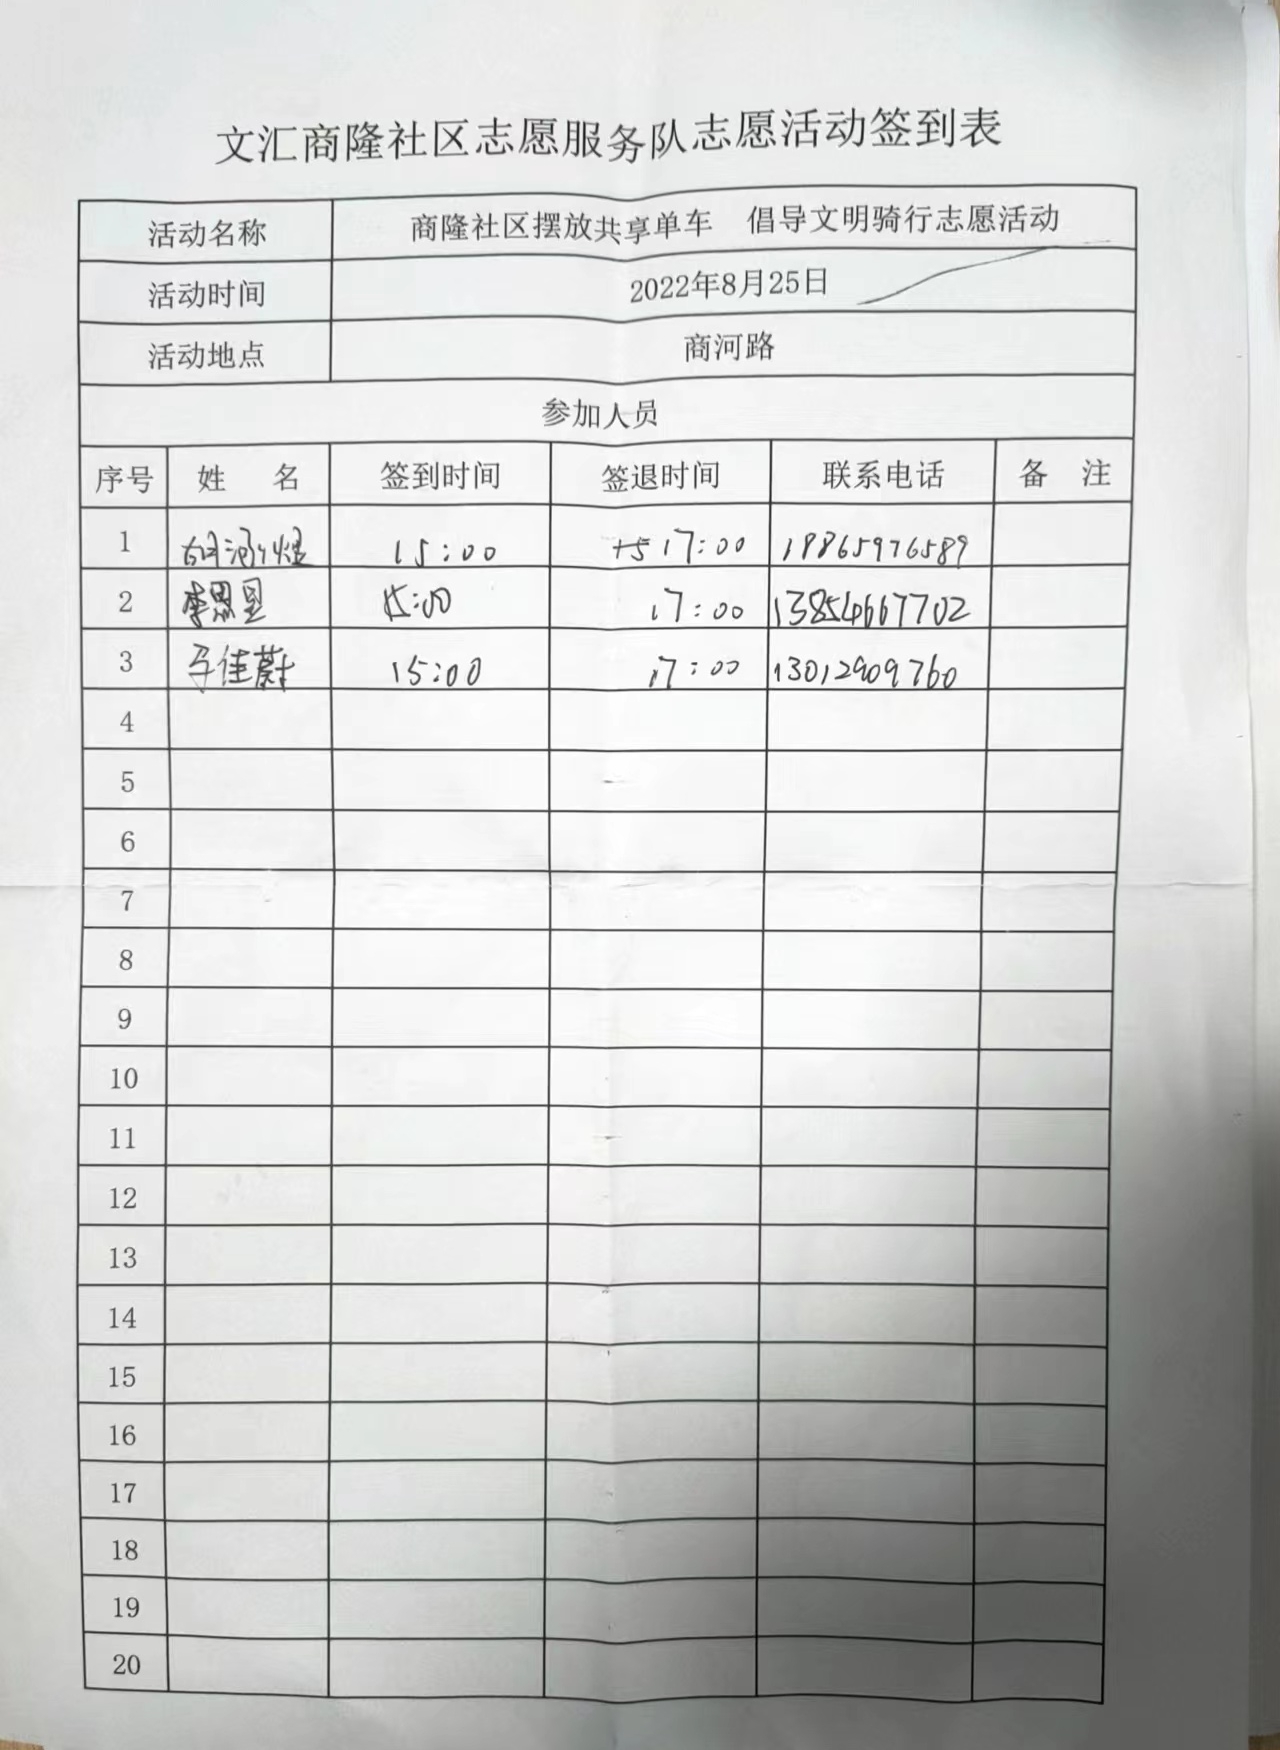 文汇商隆社区志愿服务队志愿活动签到表
活动名称 商隆社区摆放共享单车 倡导文明骑行志愿活动
活动时间 2022年8月25日
活动地点 商河路
参加人员
序号 姓 名 签到时间 签退时间 联系电话 备 注
1 胡 15:00 17:00 18865976589
2 李思昱 15:00 17:00 13854667702
3 于佳蔚 15:00 17:00 13012909760
4
5
6
7
8
9
10
11
12
13
14
15
16
17
18
19
20